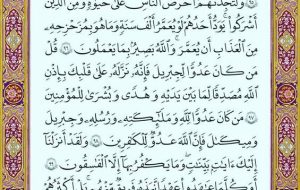 وَلَتَجِدَنَّهُمْ أَحْرَصَ النَّاسِ عَلَىٰ حَيَوٰةٍ وَمِنَ الَّذِينَ
أَشْرَكُوا۟ يَوَدُّ أَحَدُهُمْ لَوْ يُعَمَّرُ أَلْفَ سَنَةٍ وَمَا هُوَ بِمُزَحْزِحِهِۦ
مِنَ الْعَذَابِ أَن يُعَمَّرَ وَاللَّهُ بَصِيرٌۢ بِمَا يَعْمَلُونَ ٩٦ قُلْ
مَن كَانَ عَدُوًّا لِّجِبْرِيلَ فَإِنَّهُۥ نَزَّلَهُۥ عَلَىٰ قَلْبِكَ بِإِذْنِ
اللَّهِ مُصَدِّقًا لِّمَا بَيْنَ يَدَيْهِ وَهُدًى وَبُشْرَىٰ لِلْمُؤْمِنِينَ
٩٧ مَن كَانَ عَدُوًّا لِّلَّهِ وَمَلَٰٓئِكَتِهِۦ وَرُسُلِهِۦ وَجِبْرِيلَ
وَمِيكَىٰلَ فَإِنَّ اللَّهَ عَدُوٌّ لِّلْكَٰفِرِينَ ٩٨ وَلَقَدْ أَنزَلْنَآ
إِلَيْكَ ءَايَٰتٍۭ بَيِّنَٰتٍ وَمَا يَكْفُرُ بِهَآ إِلَّا الْفَٰسِقُونَ
٩٩ أَوَكُلَّمَا عَٰهَدُوا۟ عَهْدًا نَّبَذَهُۥ فَرِيقٌ مِّنْهُم بَلْ أَكْثَرُهُمْ